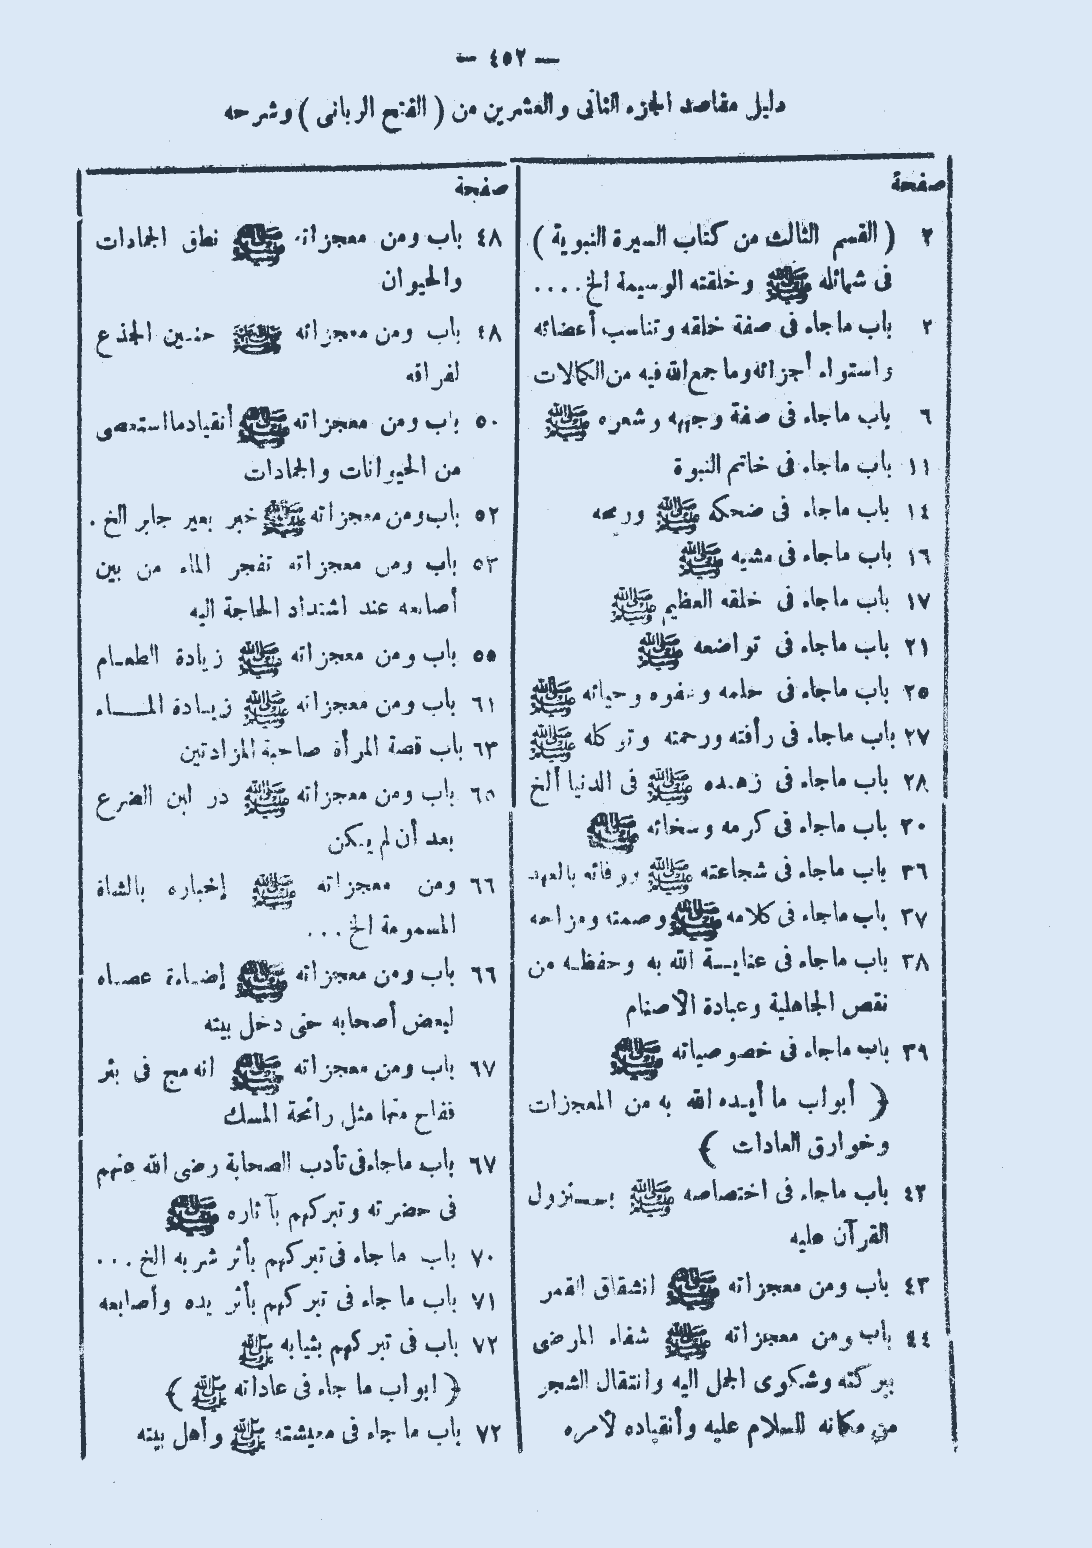 — ٤٥٢ —
دليل مقاصد الجزء الثانى والعشرين من ( الفتح الربانى ) وشرحه
صفحة
٢ ( القسم الثالث من كتاب السيرة النبوية )
فى شمائله ﷺ وخلقته الوسيمة الخ ....
٢ باب ماجاء فى صفة خلقه وتناسب أعضائه
واستواء أجزائه وما جمع الله فيه من الكمالات
٦ باب ماجاء فى صفة وجهه وشعره ﷺ
١١ باب ماجاء فى خاتم النبوة
١٤ باب ماجاء فى ضحكه ﷺ وريحه
١٦ باب ماجاء فى مشيه ﷺ
١٧ باب ماجاء فى خلقه العظيم ﷺ
٢١ باب ماجاء فى تواضعه ﷺ
٢٥ باب ماجاء فى حلمه وعفوه وحيائه ﷺ
٢٧ باب ماجاء فى رأفته ورحمته وتوكله ﷺ
٢٨ باب ماجاء فى زهده ﷺ فى الدنيا ألخ
٣٠ باب ماجاء فى كرمه وسخائه ﷺ
٣٦ باب ماجاء فى شجاعته ﷺ ووفائه بالعهد
٣٧ باب ماجاء فى كلامه ﷺ وصمته ومزاحه
٣٨ باب ماجاء فى عناية الله به وحفظه من
نقص الجاهلية وعبادة الأصنام
٣٩ باب ماجاء فى خصوصياته ﷺ
﴿ أبواب ما أيده الله به من المعجزات
وخوارق العادات ﴾
٤٢ باب ماجاء فى اختصاصه ﷺ بنزول
القرآن عليه
٤٣ باب ومن معجزاته ﷺ انشقاق القمر
٤٤ باب ومن معجزاته ﷺ شفاء المرضى
ببركته وشكوى الجمل اليه وانتقال الشجر
من مكانه للسلام عليه وأنقياده لأمره
صفحة
٤٨ باب ومن معجزاته ﷺ نطق الجمادات
والحيوان
٤٨ باب ومن معجزاته ﷺ حنين الجذع
لفراقه
٥٠ باب ومن معجزاته ﷺ أنقياد ما استعصى
من الحيوانات والجمادات
٥٢ باب ومن معجزاته ﷺ خبر بعير جابر الخ .
٥٣ باب ومن معجزاته تفجر الماء من بين
أصابعه عند اشتداد الحاجة اليه
٥٥ باب ومن معجزاته ﷺ زيادة الطعام
٦١ باب ومن معجزاته ﷺ زيادة المــاء
٦٣ باب قصة المرأة صاحبة المزادتين
٦٥ باب ومن معجزاته ﷺ در لبن الضرع
بعد أن لم يكن
٦٦ ومن معجزاته ﷺ إخباره بالشاة
المسمومة الخ ...
٦٦ باب ومن معجزاته ﷺ إضاءة عصاه
لبعض أصحابه حتى دخل بيته
٦٧ باب ومن معجزاته ﷺ انه مج فى بئر
ففاح منها مثل رائحة المسك
٦٧ باب ماجاء فى تأدب الصحابة رضى الله عنهم
فى حضرته وتبركهم بآثاره ﷺ
٧٠ باب ما جاء فى تبركهم بأثر شربه الخ ...
٧١ باب ما جاء فى تبركهم بأثر يده وأصابعه
٧٢ باب فى تبركهم بثيابه ﷺ
﴿ ابواب ما جاء فى عاداته ﷺ ﴾
٧٢ باب ما جاء فى معيشته ﷺ وأهل بيته